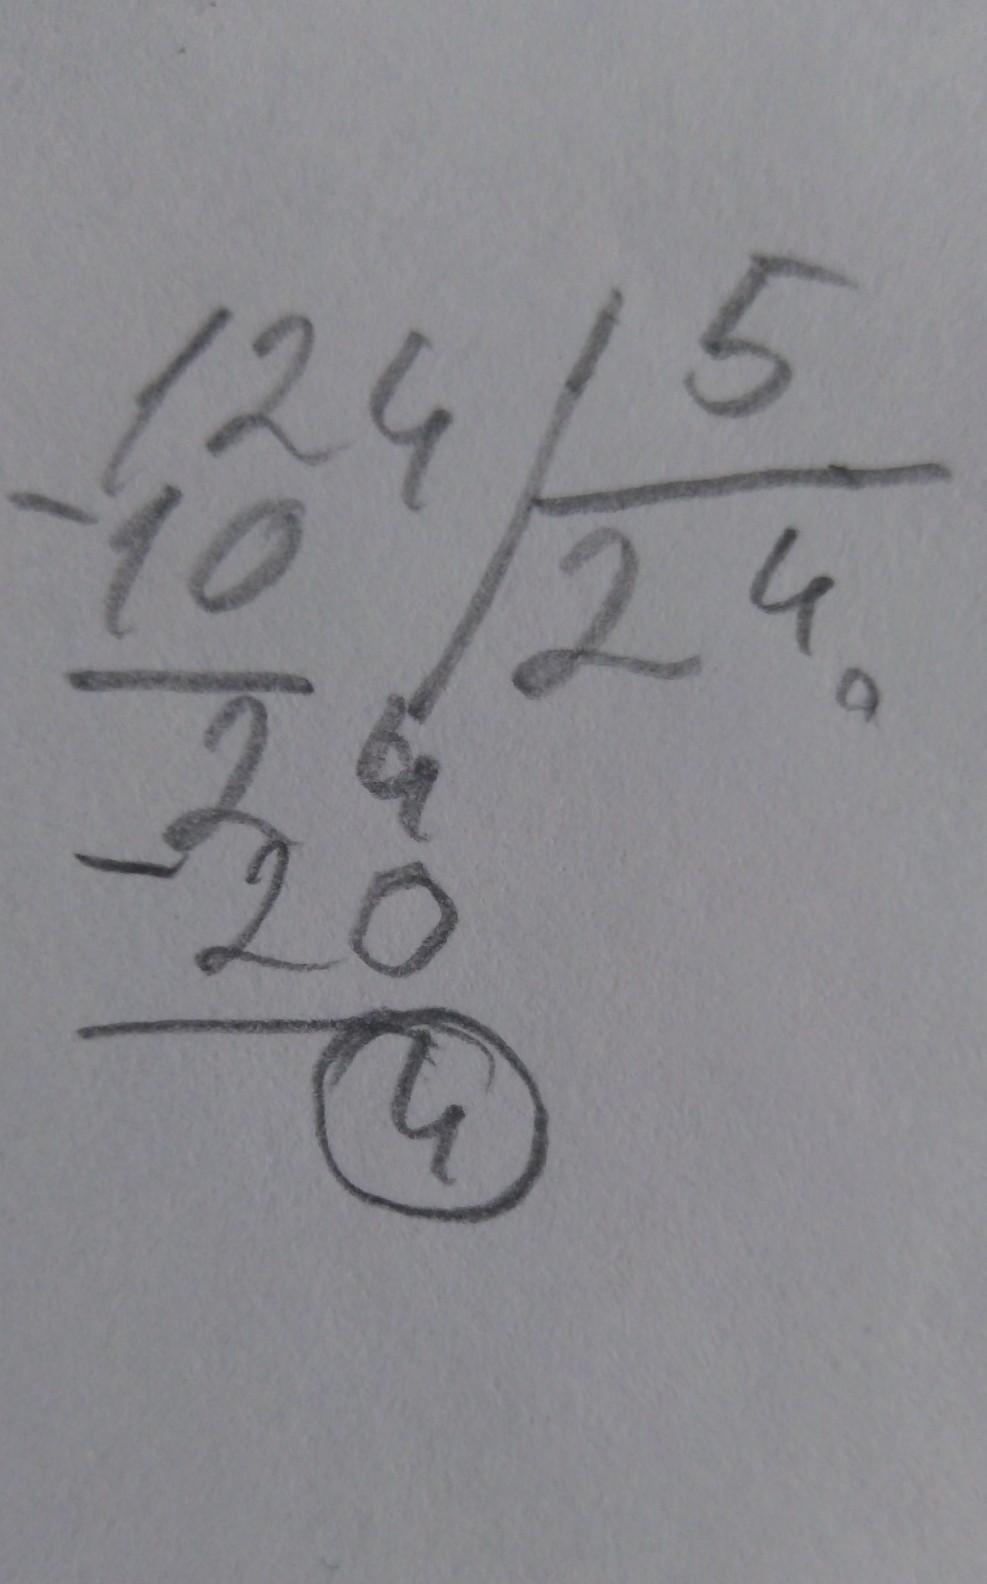 124 | 5
-10 24.
24
-20
4